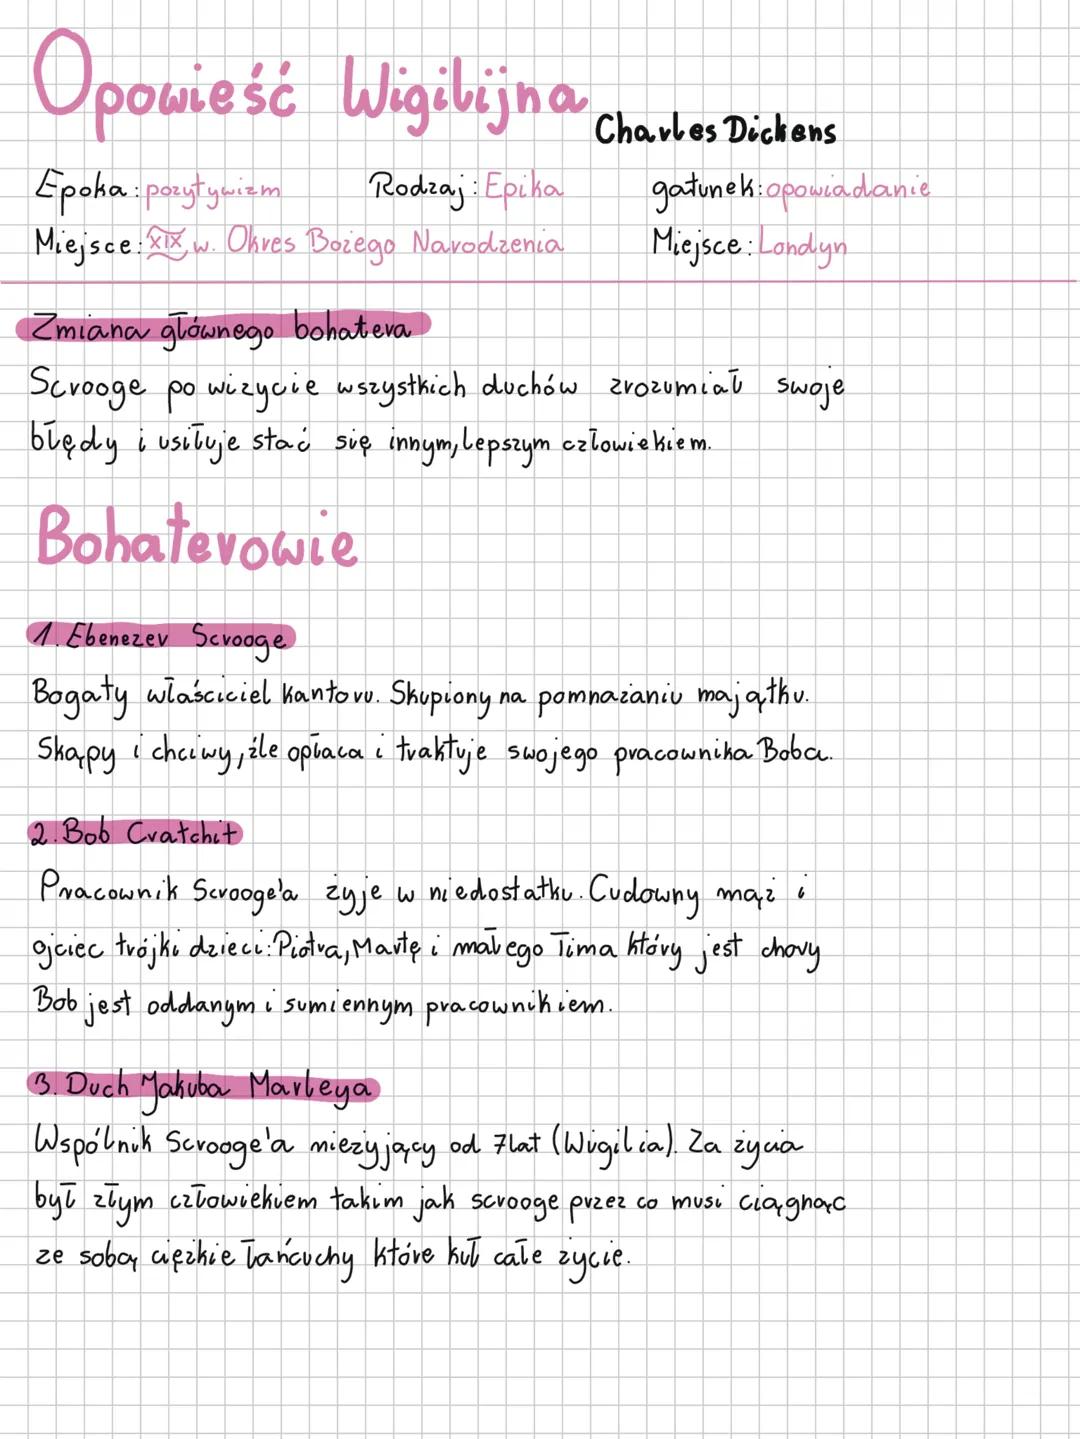 Opowieść Wigilijna
Charles Dickens
Epoka: pozytywizm Rodzaj: Epika gatunek: opowiadanie
Miejsce: XIX w. Okres Bożego Narodzenia Miejsce: Londyn
Zmiana głównego bohatera
Scrooge po wizycie wszystkich duchów zrozumiał swoje
błędy i usiłuje stać się innym, lepszym człowiekiem.
Bohaterowie
1. Ebenezer Scrooge
Bogaty właściciel kantoru. Skupiony na pomnażaniu majątku.
Skąpy i chciwy, źle opłaca i traktuje swojego pracownika Boba.
2. Bob Cratchit
Pracownik Scrooge'a żyje w niedostatku. Cudowny mąż i
ojciec trójki dzieci: Piotra, Martę i małego Tima który jest chory
Bob jest oddanym i sumiennym pracownikiem.
3. Duch Jakuba Marleya
Wspólnik Scrooge'a nieżyjący od 7 lat (Wigilia). Za życia
był złym człowiekiem takim jak scrooge przez co musi ciągnąć
ze sobą ciężkie łańcuchy które kuł całe życie.